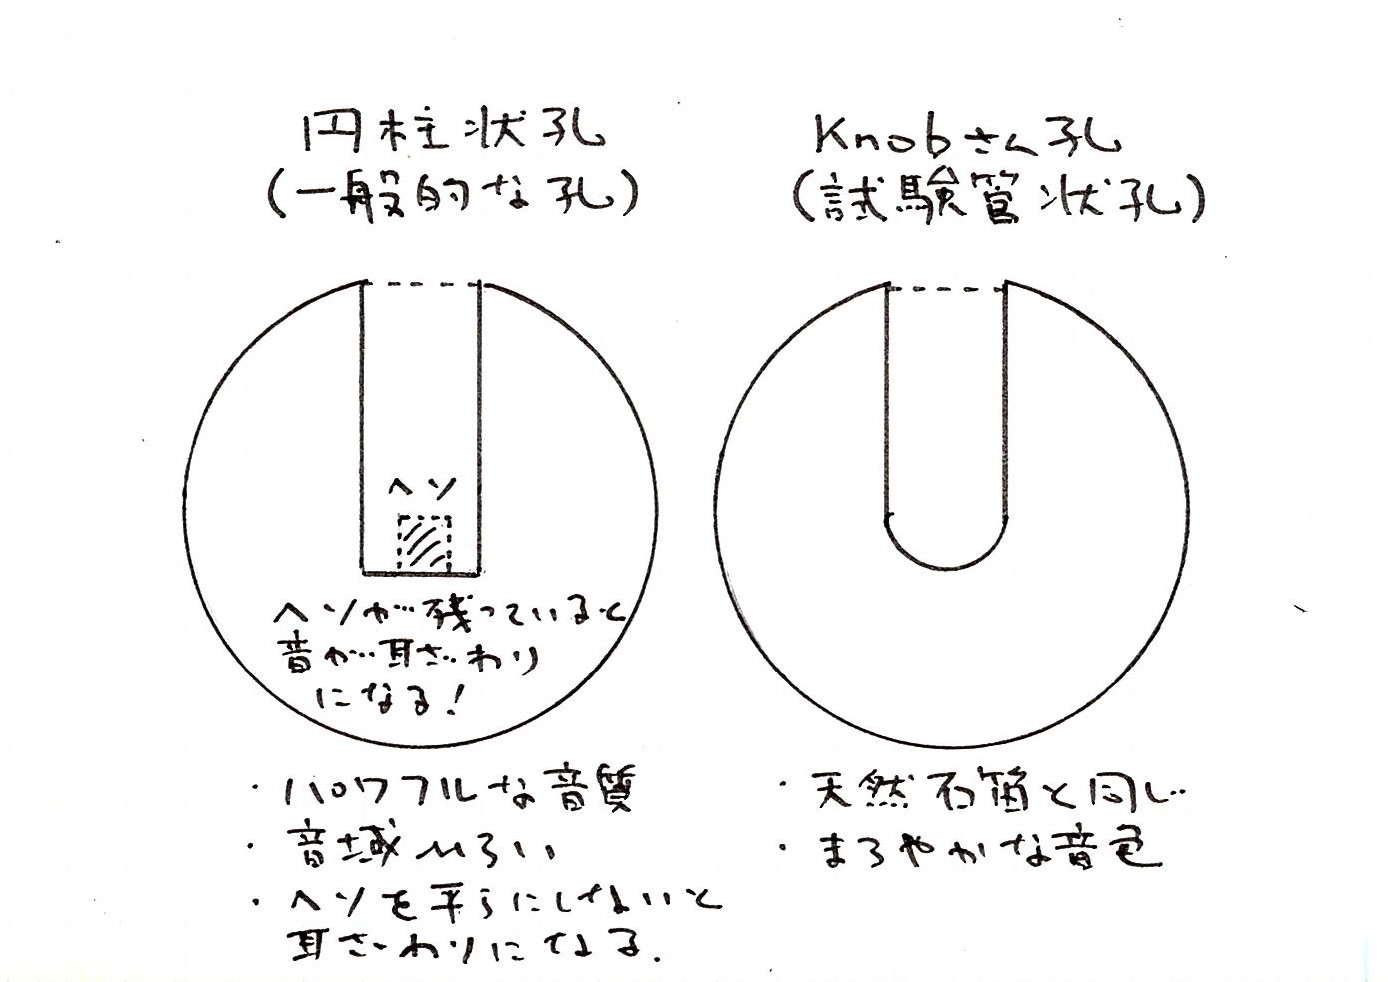 円柱状孔
(一般的な孔)
ヘソ
ヘソが残っていると
音が耳ざわり
になる!
・パワフルな音質
・音域ひろい
・ヘソを平らにしないと
耳ざわりになる.
Knobさん孔
(試験管状孔)
・天然石笛と同じ
・まろやかな音色